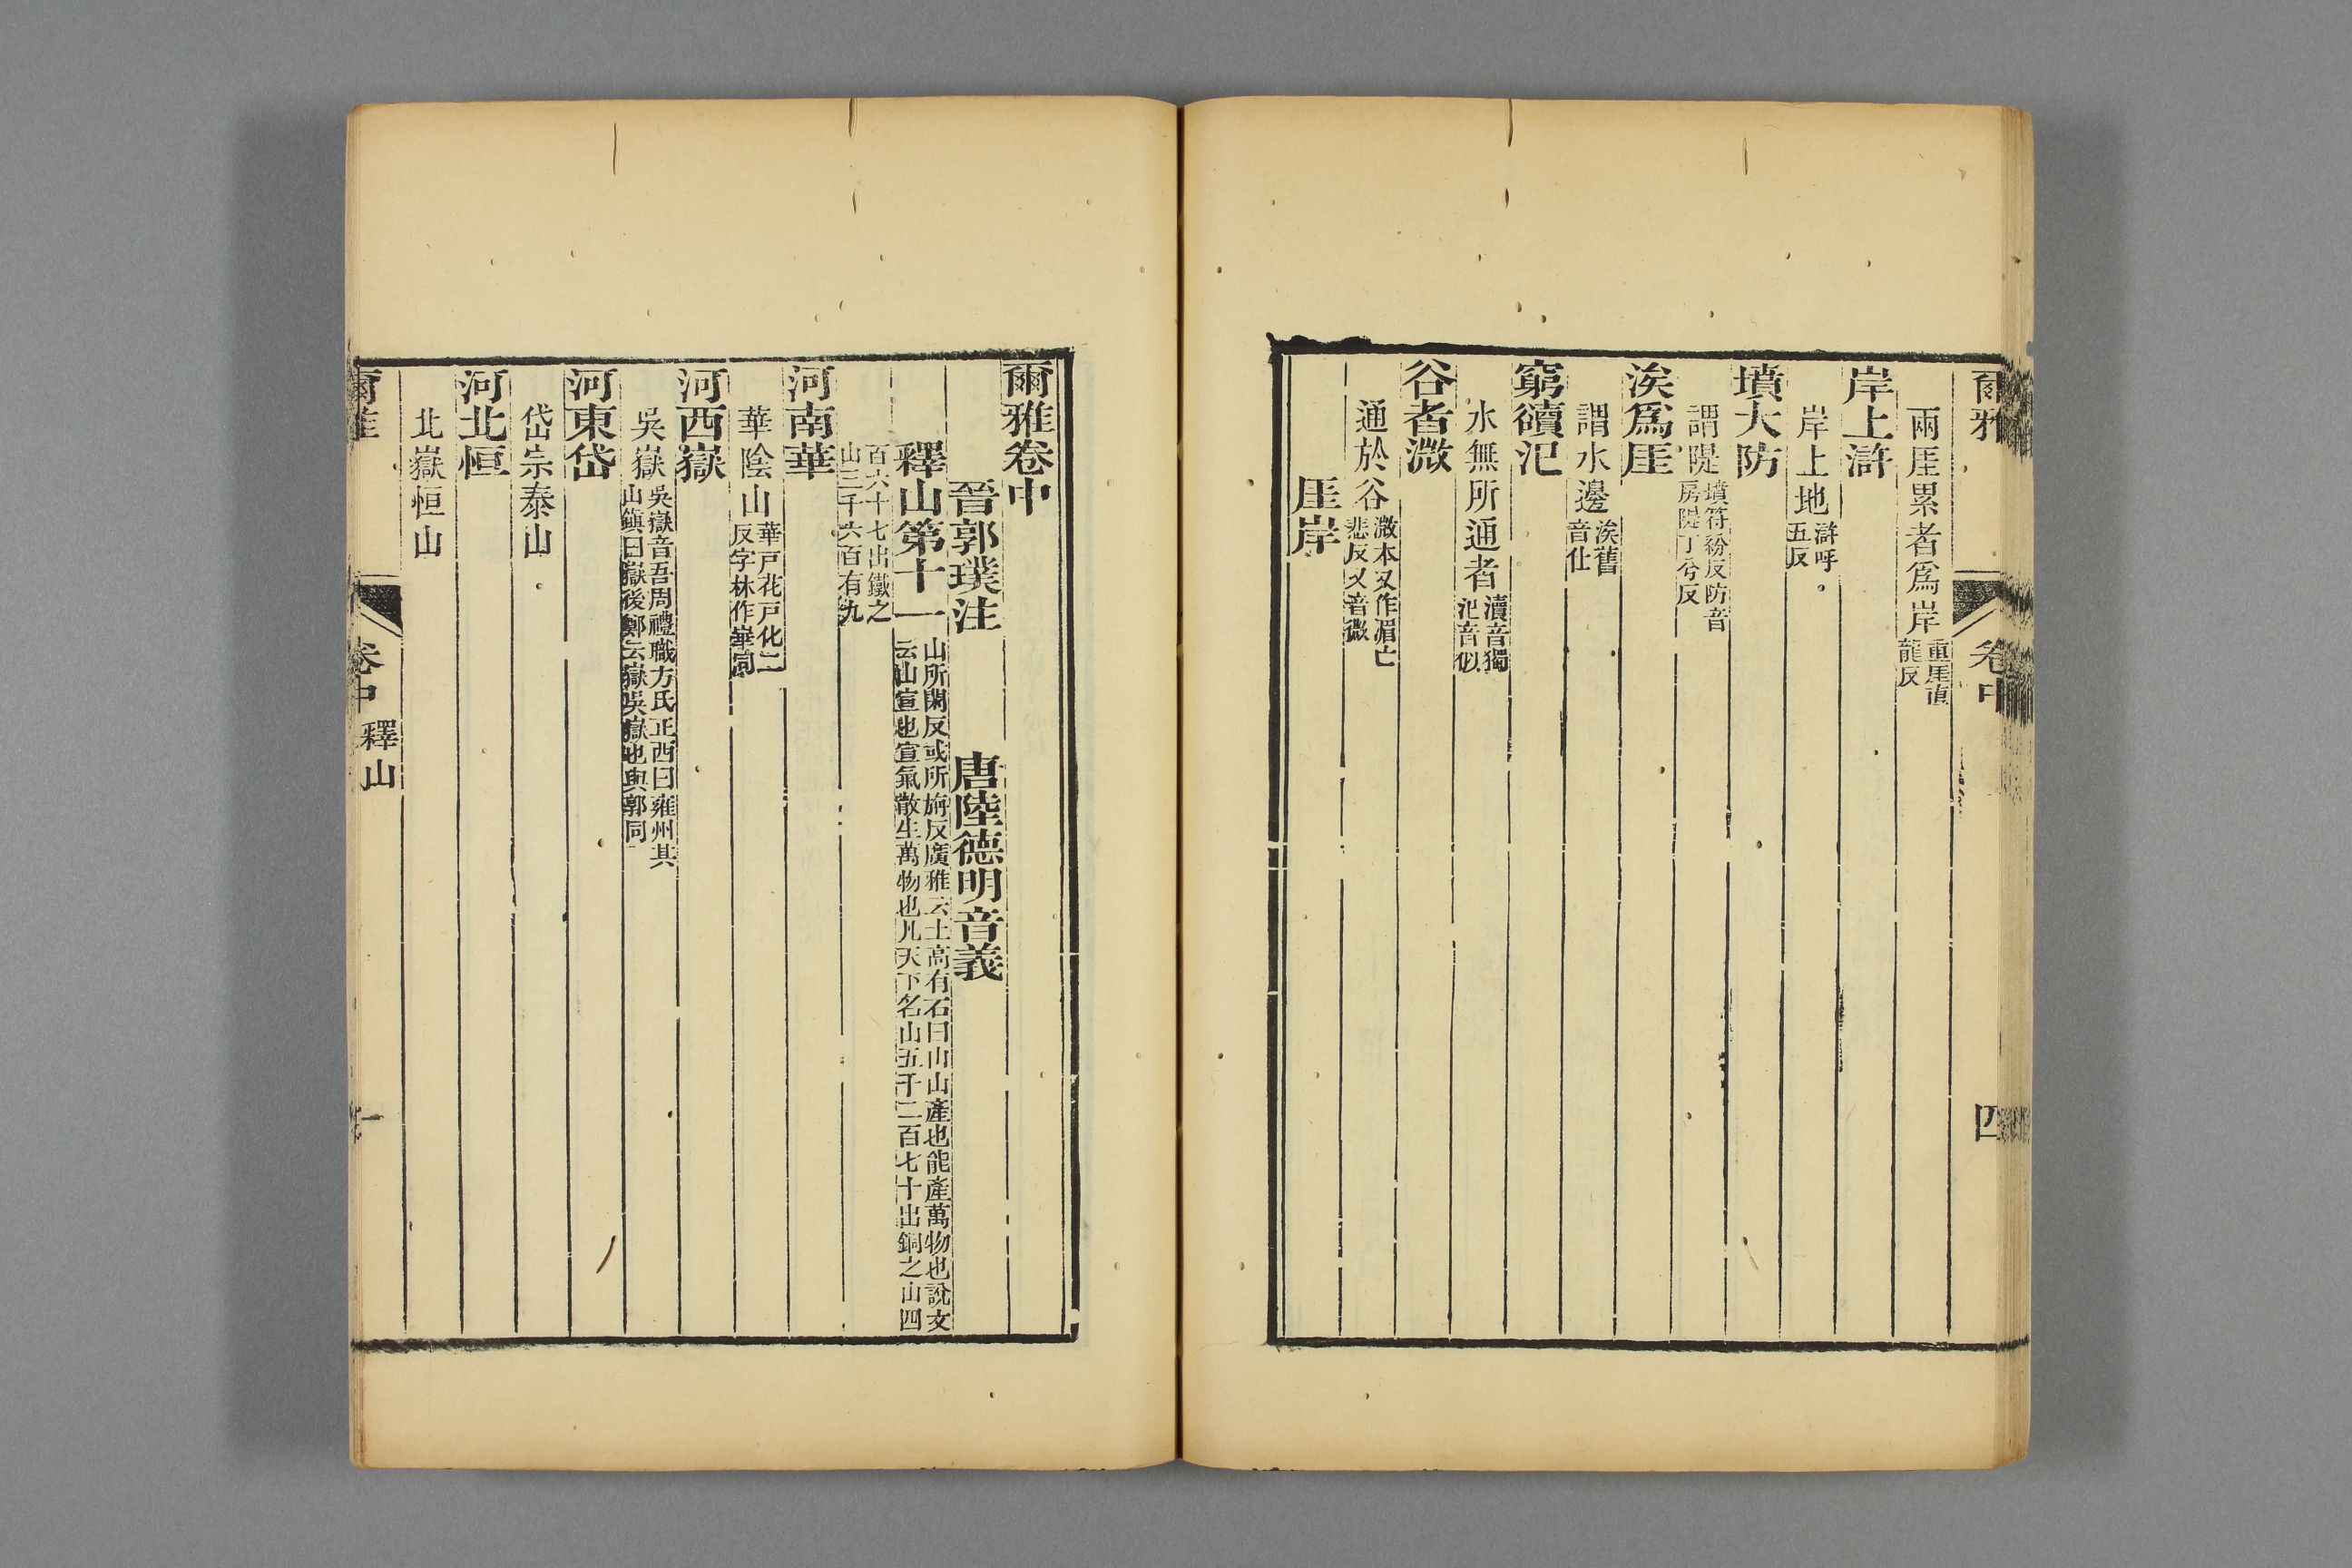 爾雅
卷中
四
兩厓累者爲岸重厓直龍反
岸上滸
岸上地滸呼五反
墳大防
謂隄墳符紛反防音房隄丁兮反
涘爲厓
謂水邊涘舊音仕
窮瀆汜
水無所通者瀆音獨汜音似
谷者溦
通於谷溦本又作湄亡悲反又音微
厓岸
爾雅卷中
晉郭璞注　唐陸德明音義
釋山第十一山所閑反或所旃反廣雅云土高有石曰山山產也能產萬物也說文云山宣也宣氣散生萬物也凡天下名山五千二百七十出銅之山四
百六十七出鐵之山三千六百有九
河南華
華陰山華戸花戸化二反字林作崋同
河西嶽
吳嶽吳嶽音吾周禮職方氏正西曰雍州其山鎮曰嶽後鄭云嶽吳嶽也與郭同
河東岱
岱宗泰山
河北恒
北嶽恒山
爾雅
卷中
釋山
一